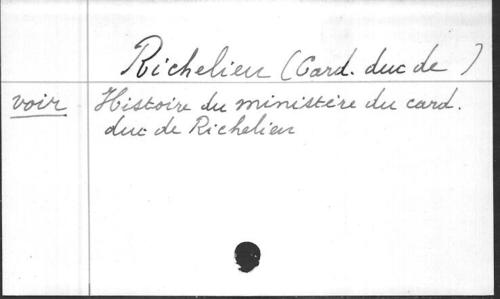 Richelieu (Card. duc de )
voir Histoire du ministère du card.
duc de Richelieu